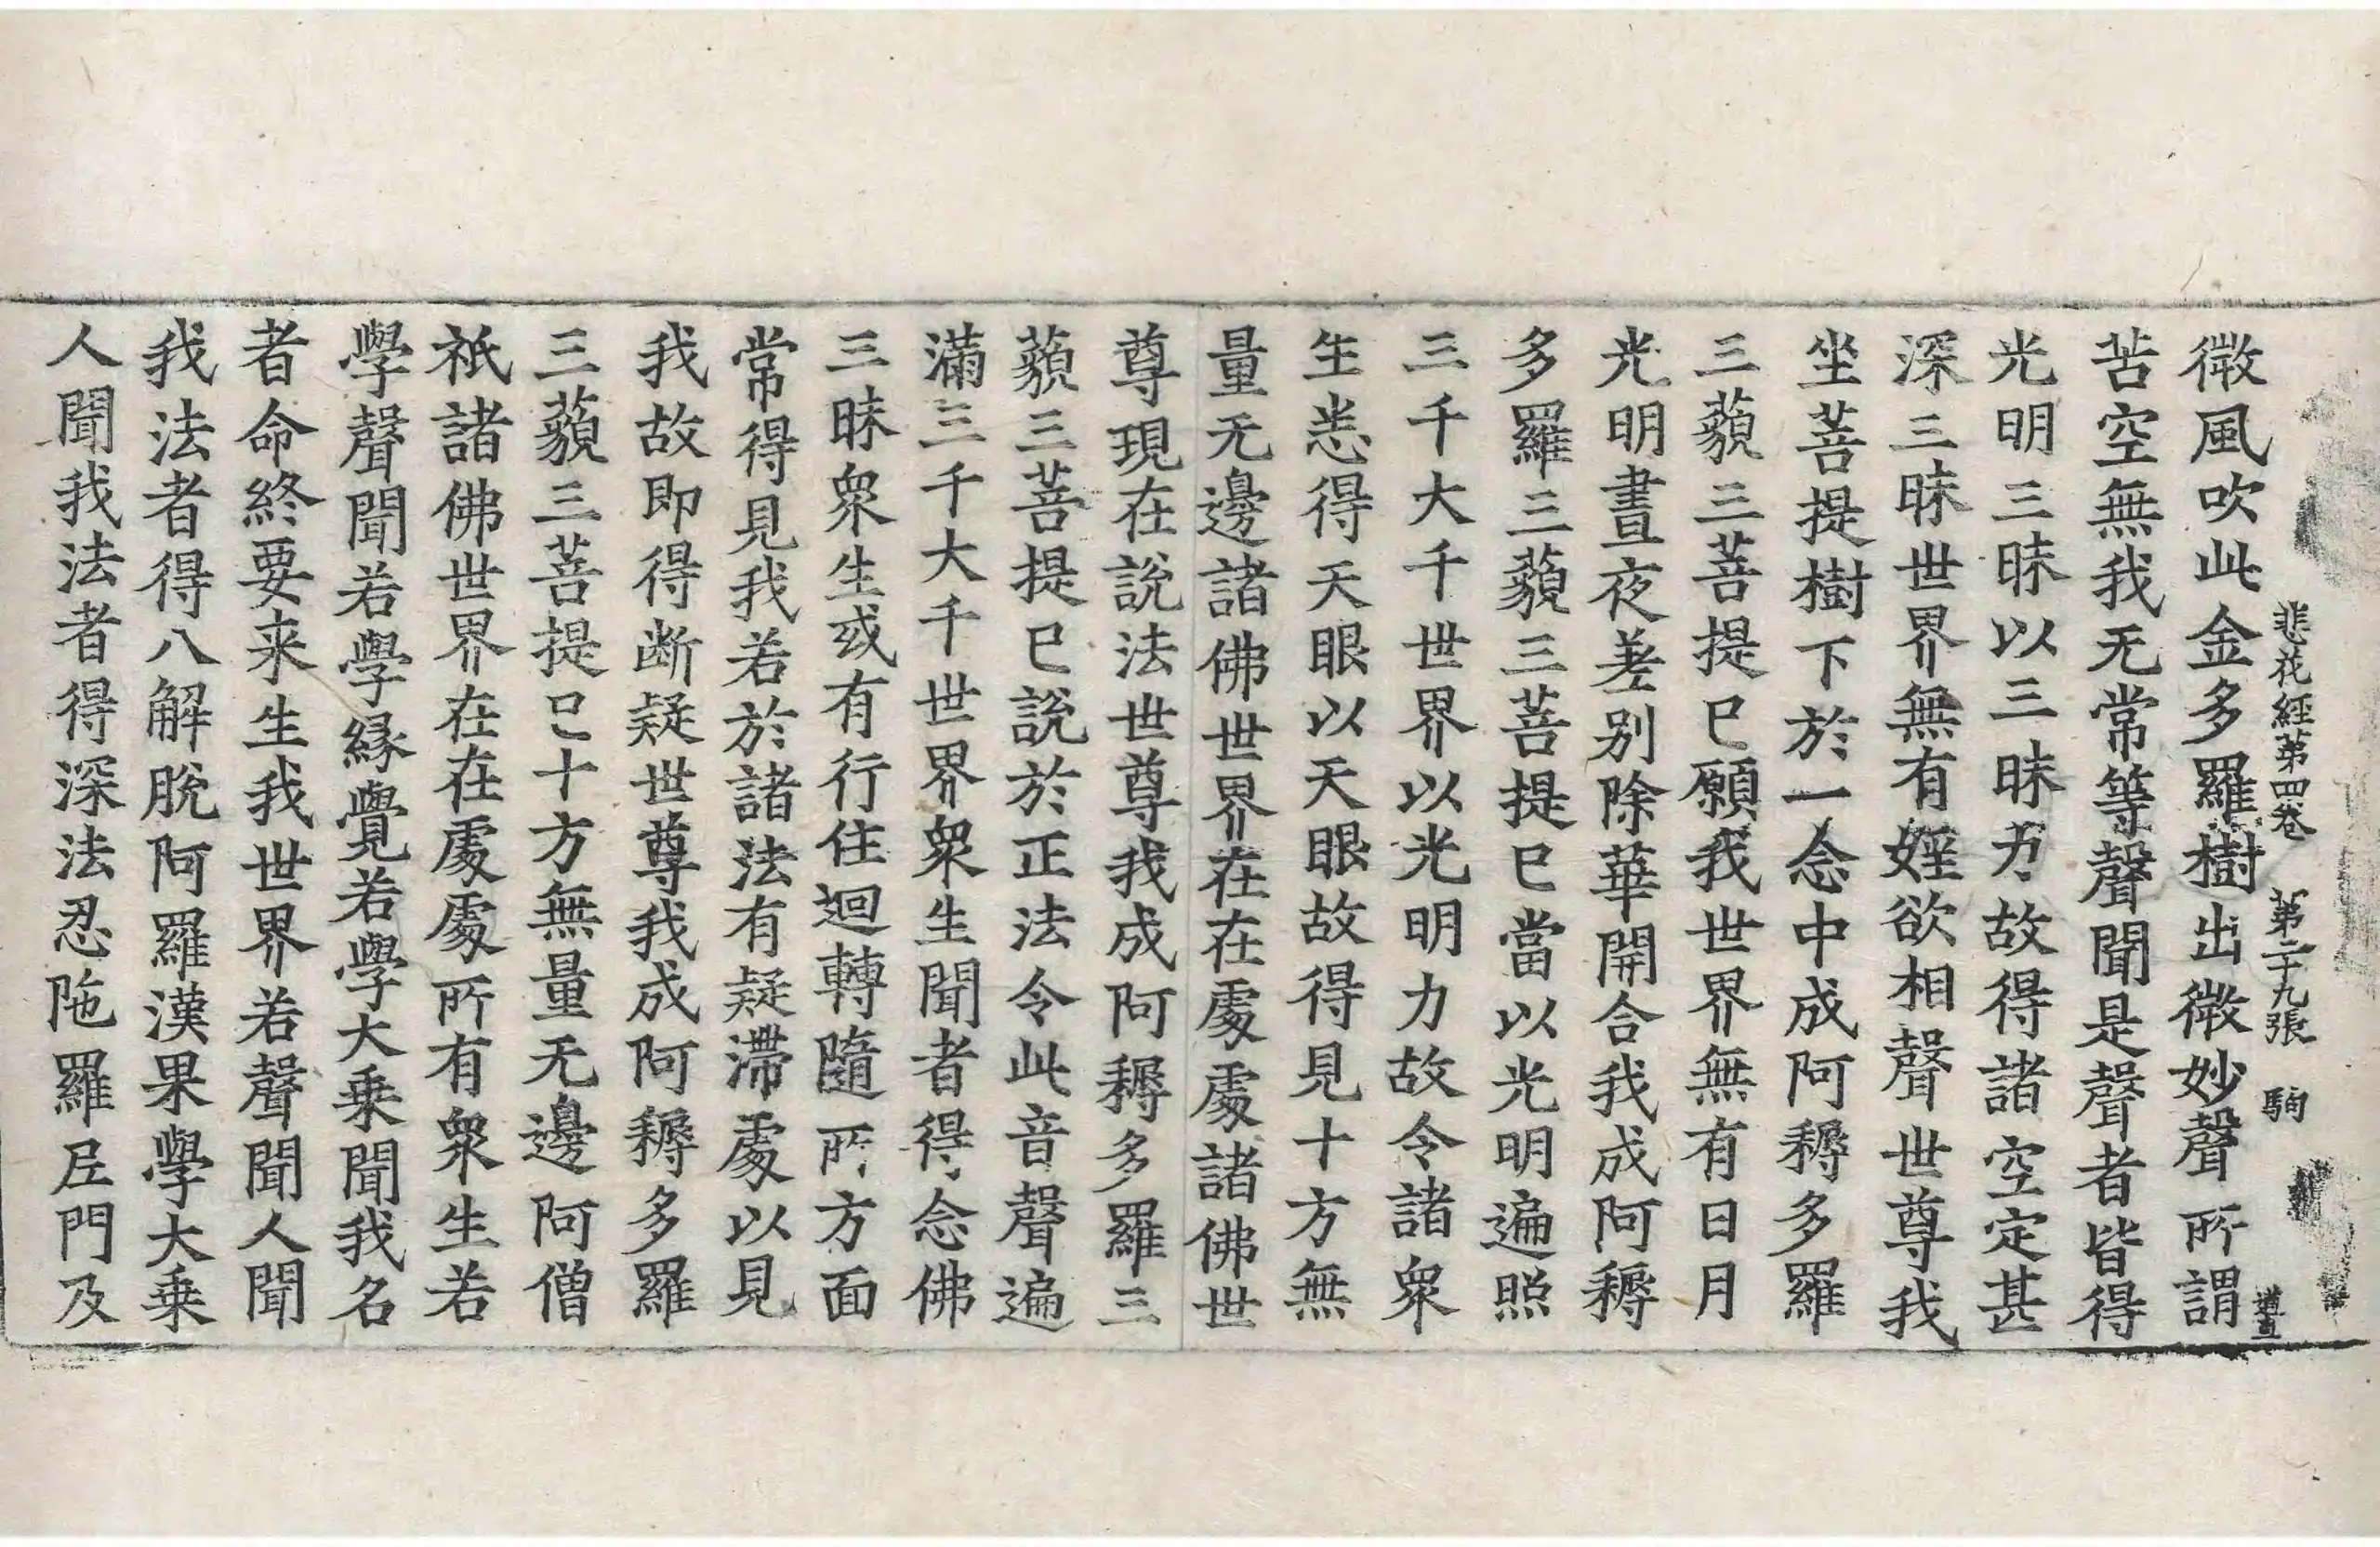 悲花經苐四卷 苐二十九張 駒 遵直
微風吹此金多羅樹出微妙聲所謂
苦空無我无常等聲聞是聲者皆得
光明三昧以三昧力故得諸空定甚
深三昧世界無有婬欲相聲世尊我
坐菩提樹下於一念中成阿耨多羅
三藐三菩提已願我世界無有日月
光明晝夜差别除華開合我成阿耨
多羅三藐三菩提已當以光明遍照
三千大千世界以光明力故令諸衆
生悉得天眼以天眼故得見十方無
量无邊諸佛世界在在處處諸佛世
尊現在說法世尊我成阿耨多羅三
藐三菩提已說於正法令此音聲遍
滿三千大千世界衆生聞者得念佛
三昧衆生或有行住迴轉隨所方面
常得見我若於諸法有疑滯處以見
我故即得断疑世尊我成阿耨多羅
三藐三菩提已十方無量无邊阿僧
祇諸佛世界在在處處所有衆生若
學聲聞若學縁覺若學大乗聞我名
者命終要来生我世界若聲聞人聞
我法者得八解脫阿羅漢果學大乗
人聞我法者得深法忍陁羅尼門及